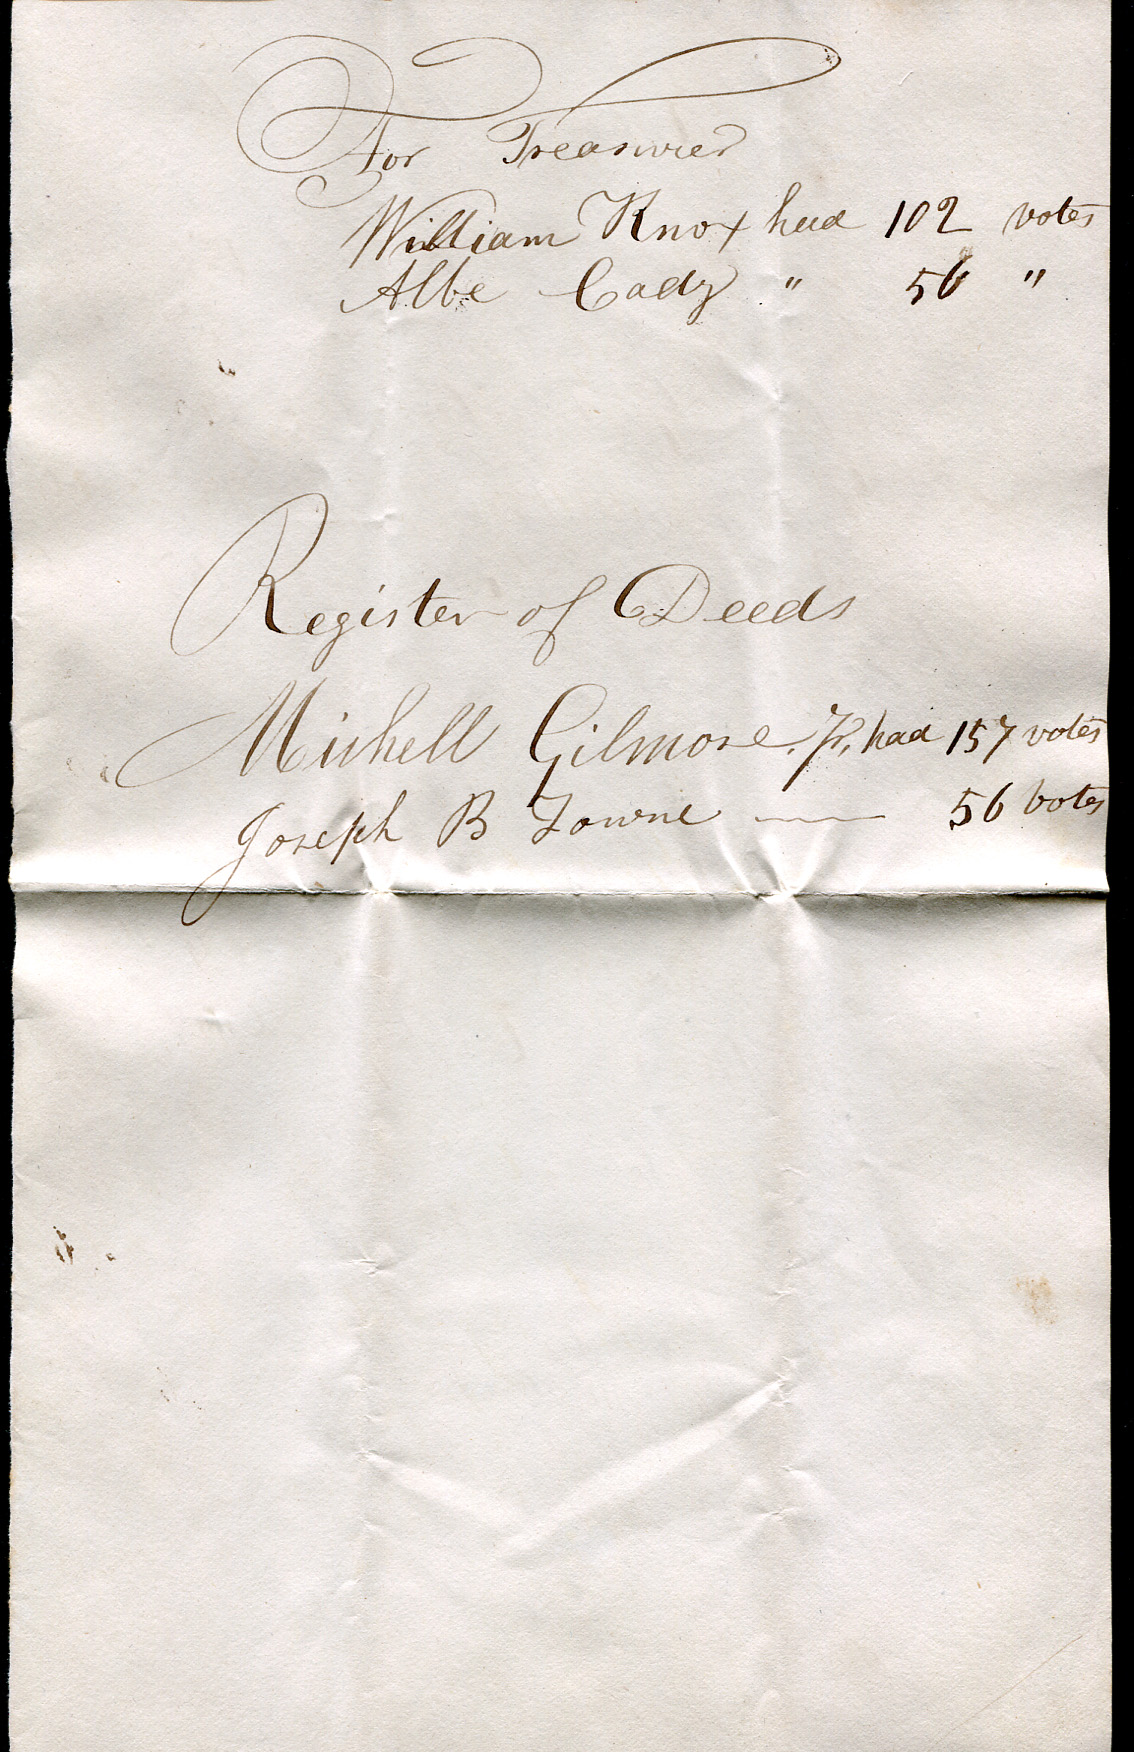 For Treasurer
William Knox had 102 votes
Albe Cady " 56 "
Register of Deeds
Michell Gilmore. Jr, had 157 votes
Joseph B Towne — 56 votes